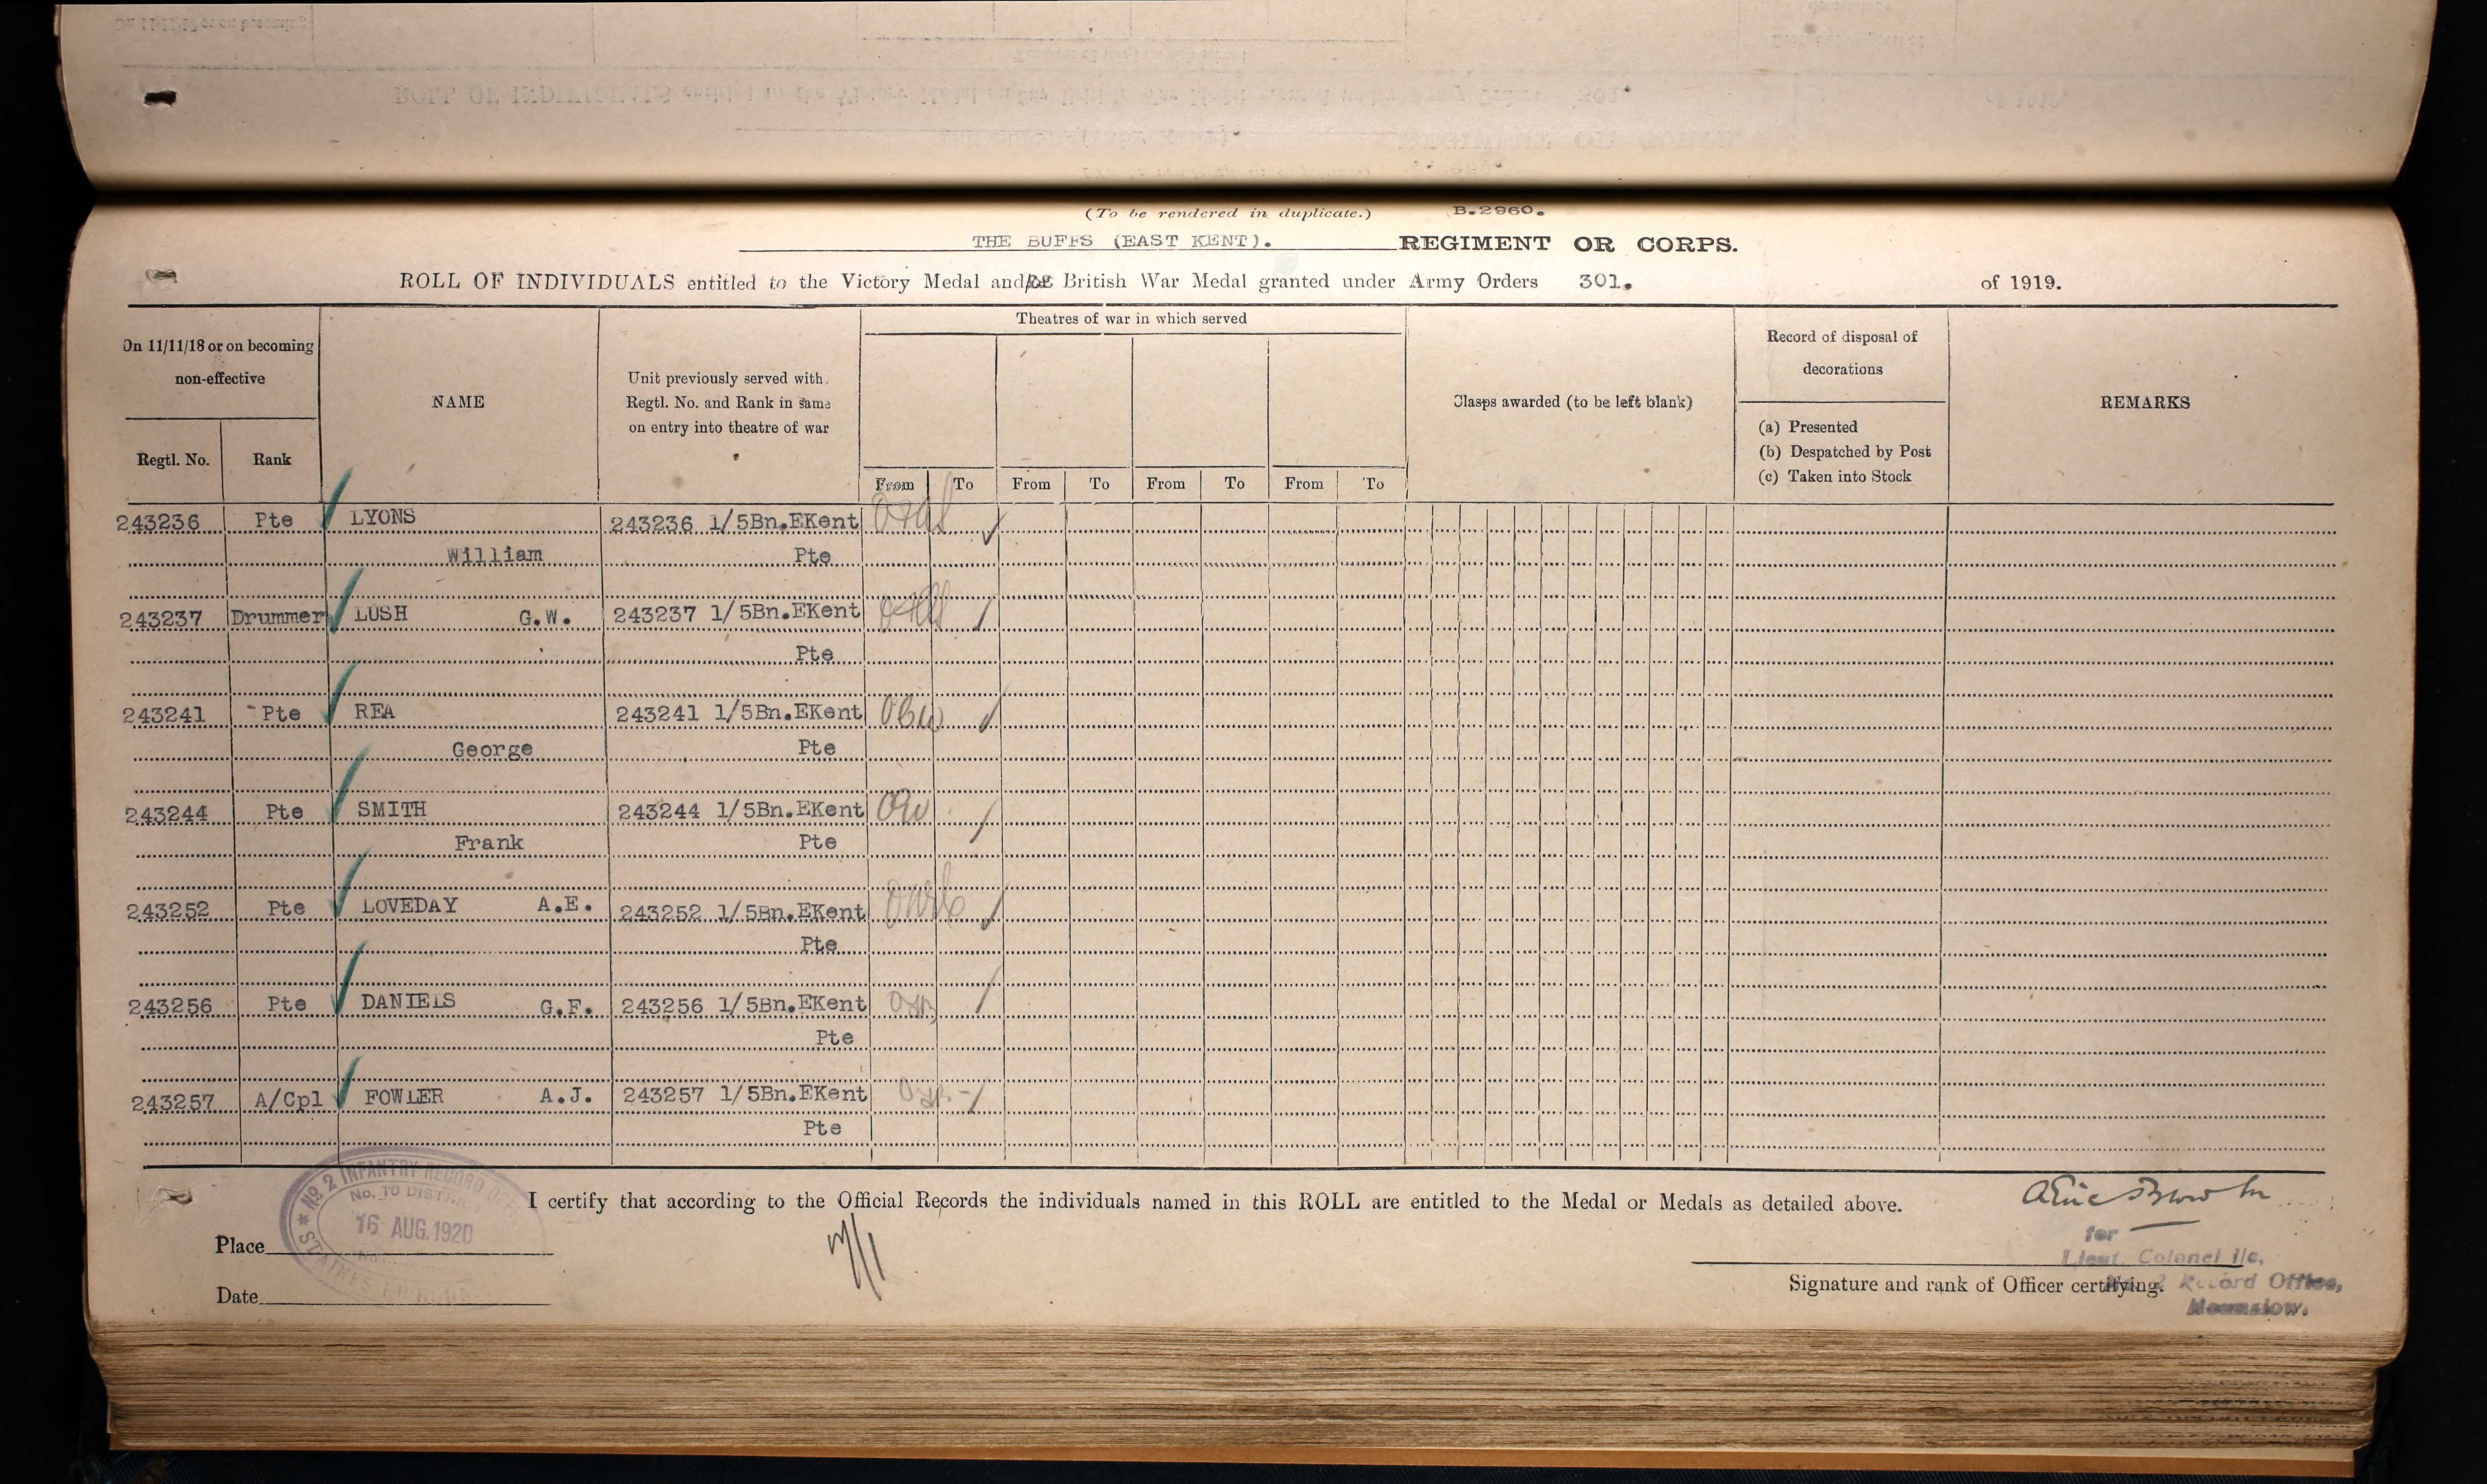 (To be rendered in duplicate.) B.2960.
THE BUFFS (EAST KENT). REGIMENT OR CORPS.
ROLL OF INDIVIDUALS entitled to the Victory Medal and/or British War Medal granted under Army Orders 301. of 1919.
On 11/11/18 or on becoming non-effective
Regtl. No.
Rank
NAME
Unit previously served with, Regtl. No. and Rank in same on entry into theatre of war
Theatres of war in which served
From To From To From To From To
Clasps awarded (to be left blank)
Record of disposal of decorations
(a) Presented
(b) Despatched by Post
(c) Taken into Stock
REMARKS
243236 Pte LYONS 243236 1/5Bn.EKent
William Pte
243237 Drummer LUSH G.W. 243237 1/5Bn.EKent
Pte
243241 Pte REA 243241 1/5Bn.EKent
George Pte
243244 Pte SMITH 243244 1/5Bn.EKent
Frank Pte
243252 Pte LOVEDAY A.E. 243252 1/5Bn.EKent
Pte
243256 Pte DANIELS G.F. 243256 1/5Bn.EKent
Pte
243257 A/Cpl FOWLER A.J. 243257 1/5Bn.EKent
Pte
No. 2 INFANTRY RECORD
No. TO DIST
16 AUG. 1920
I certify that according to the Official Records the individuals named in this ROLL are entitled to the Medal or Medals as detailed above.
Place
Date
for
Lieut. Colonel i/c,
No. 2 Record Office,
Hounslow.
Signature and rank of Officer certifying.